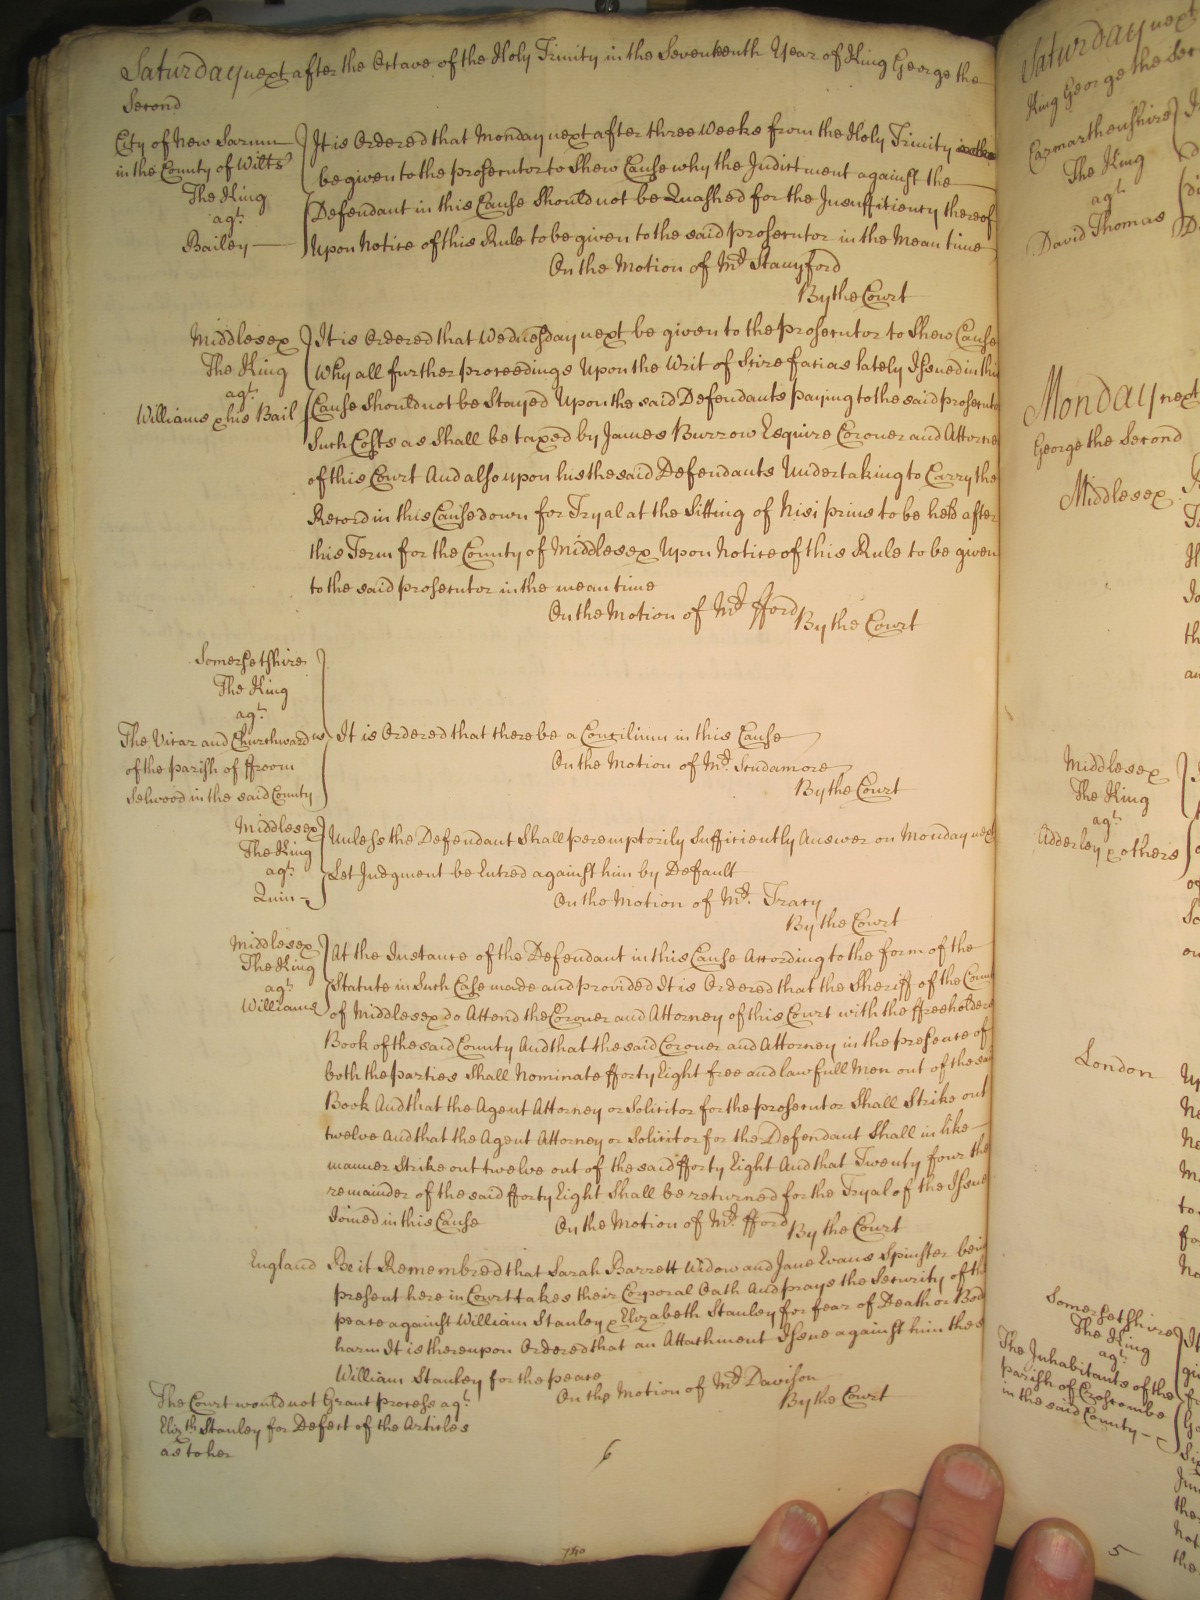 Saturday next after the Octave of the Holy Trinity in the Seventeenth Year of King George the
Second
City of New Sarum
in the County of Wilts
The King
agt.
Bailey
It is Ordered that Monday next after three Weeks from the Holy Trinity
be given to the prosecutor to Shew Cause why the Indictment against the
Defendant in this Cause Should not be Quashed for the Insufficiency thereof
Upon Notice of this Rule to be given to the said prosecutor in the Mean time
On the Motion of Mr. Stanyford
By the Court
Middlesex
The King
agt.
Williams & his Bail
It is Ordered that Wednesday next be given to the prosecutor to Shew Cause
Why all further proceedings Upon the Writ of Scire facias lately Issued in this
Cause Should not be Stayed Upon the said Defendants paying to the said prosecuto
Such Costs as Shall be taxed by James Burrow Esquire Coroner and Attorne
of this Court And also upon his the said Defendants Undertaking to Carry the
Record in this Cause down for Tryal at the Sitting of Nisi prius to be held after
this Term for the County of Middlesex Upon Notice of this Rule to be given
to the said prosecutor in the mean time
On the Motion of Mr. fford
By the Court
Somersetshire
The King
agt.
The Vicar and Churchwardns
of the parish of ffroom
Selwood in the said County
It is Ordered that there be a Concilium in this Cause
On the Motion of Mr. Scudamore
By the Court
Middlesex
The King
agt.
Quin
Unless the Defendant Shall peremptorily Sufficiently Answer on Monday next
Let Judgment be Entred against him by Default
On the Motion of Mr. Tracy
By the Court
Middlesex
The King
agt.
Williams
At the Instance of the Defendant in this Cause According to the form of the
Statute in Such Case made and provided It is Ordered that the Sheriff of the Coun
of Middlesex do Attend the Coroner and Attorney of this Court with the ffreeholders
Book of the said County And that the said Coroner and Attorney in the presence of
both the parties Shall Nominate fforty Eight free and lawfull Men out of the sa
Book And that the Agent Attorney or Solicitor for the prosecutor Shall Strike out
twelve And that the Agent Attorney or Solicitor for the Defendant Shall in like
manner Strike out twelve out of the said fforty Eight And that Twenty four the
remainder of the said fforty Eight Shall be returned for the Tryal of the Issue
Joined in this Cause
On the Motion of Mr. fford
By the Court
England
Be it Remembred that Sarah Barrett Widow and Jane Evans Spinster bein
present here in Court takes their Corporal Oath And prays the Security of th
peace against William Stanley & Elizabeth Stanley for fear of Death or Bod
harm It is thereupon Ordered that an Attachment Issue against him the s
William Stanley for the peace
On the Motion of Mr. Davison
By the Court
The Court would not Grant process agt.
Elizth Stanley for Defect of the Articles
as to her
6
Saturday next
King George the Sec
Carmarthenshire
The King
agt.
David Thomas
Monday next
George the Second
Middlesex
Middlesex
The King
agt.
Adderley & others
London
Somersetshire
The King
agt.
The Inhabitants of the
parish of Croscombe
in the said County
5